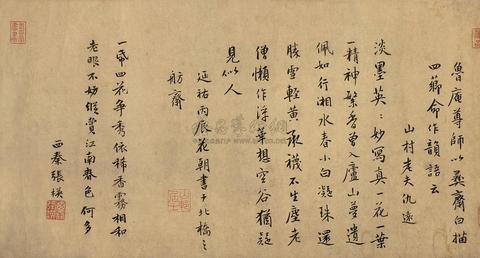 魯庵尊師以彝齋白描
四薌命作韻語云
山村老夫仇遠
淡墨英英妙寫真一花一葉
一精神繁香曾入廬山夢遺
佩如行湘水春小白凝珠還
勝雪輕黃承襪不生塵老
僧懶作浮華想空谷猶疑
見似人
延祐丙辰花朝書于北橋之
舫齋
一香四花爭秀依稀香霧相和
老眼不妨縱賞江南春色何多
西秦張模